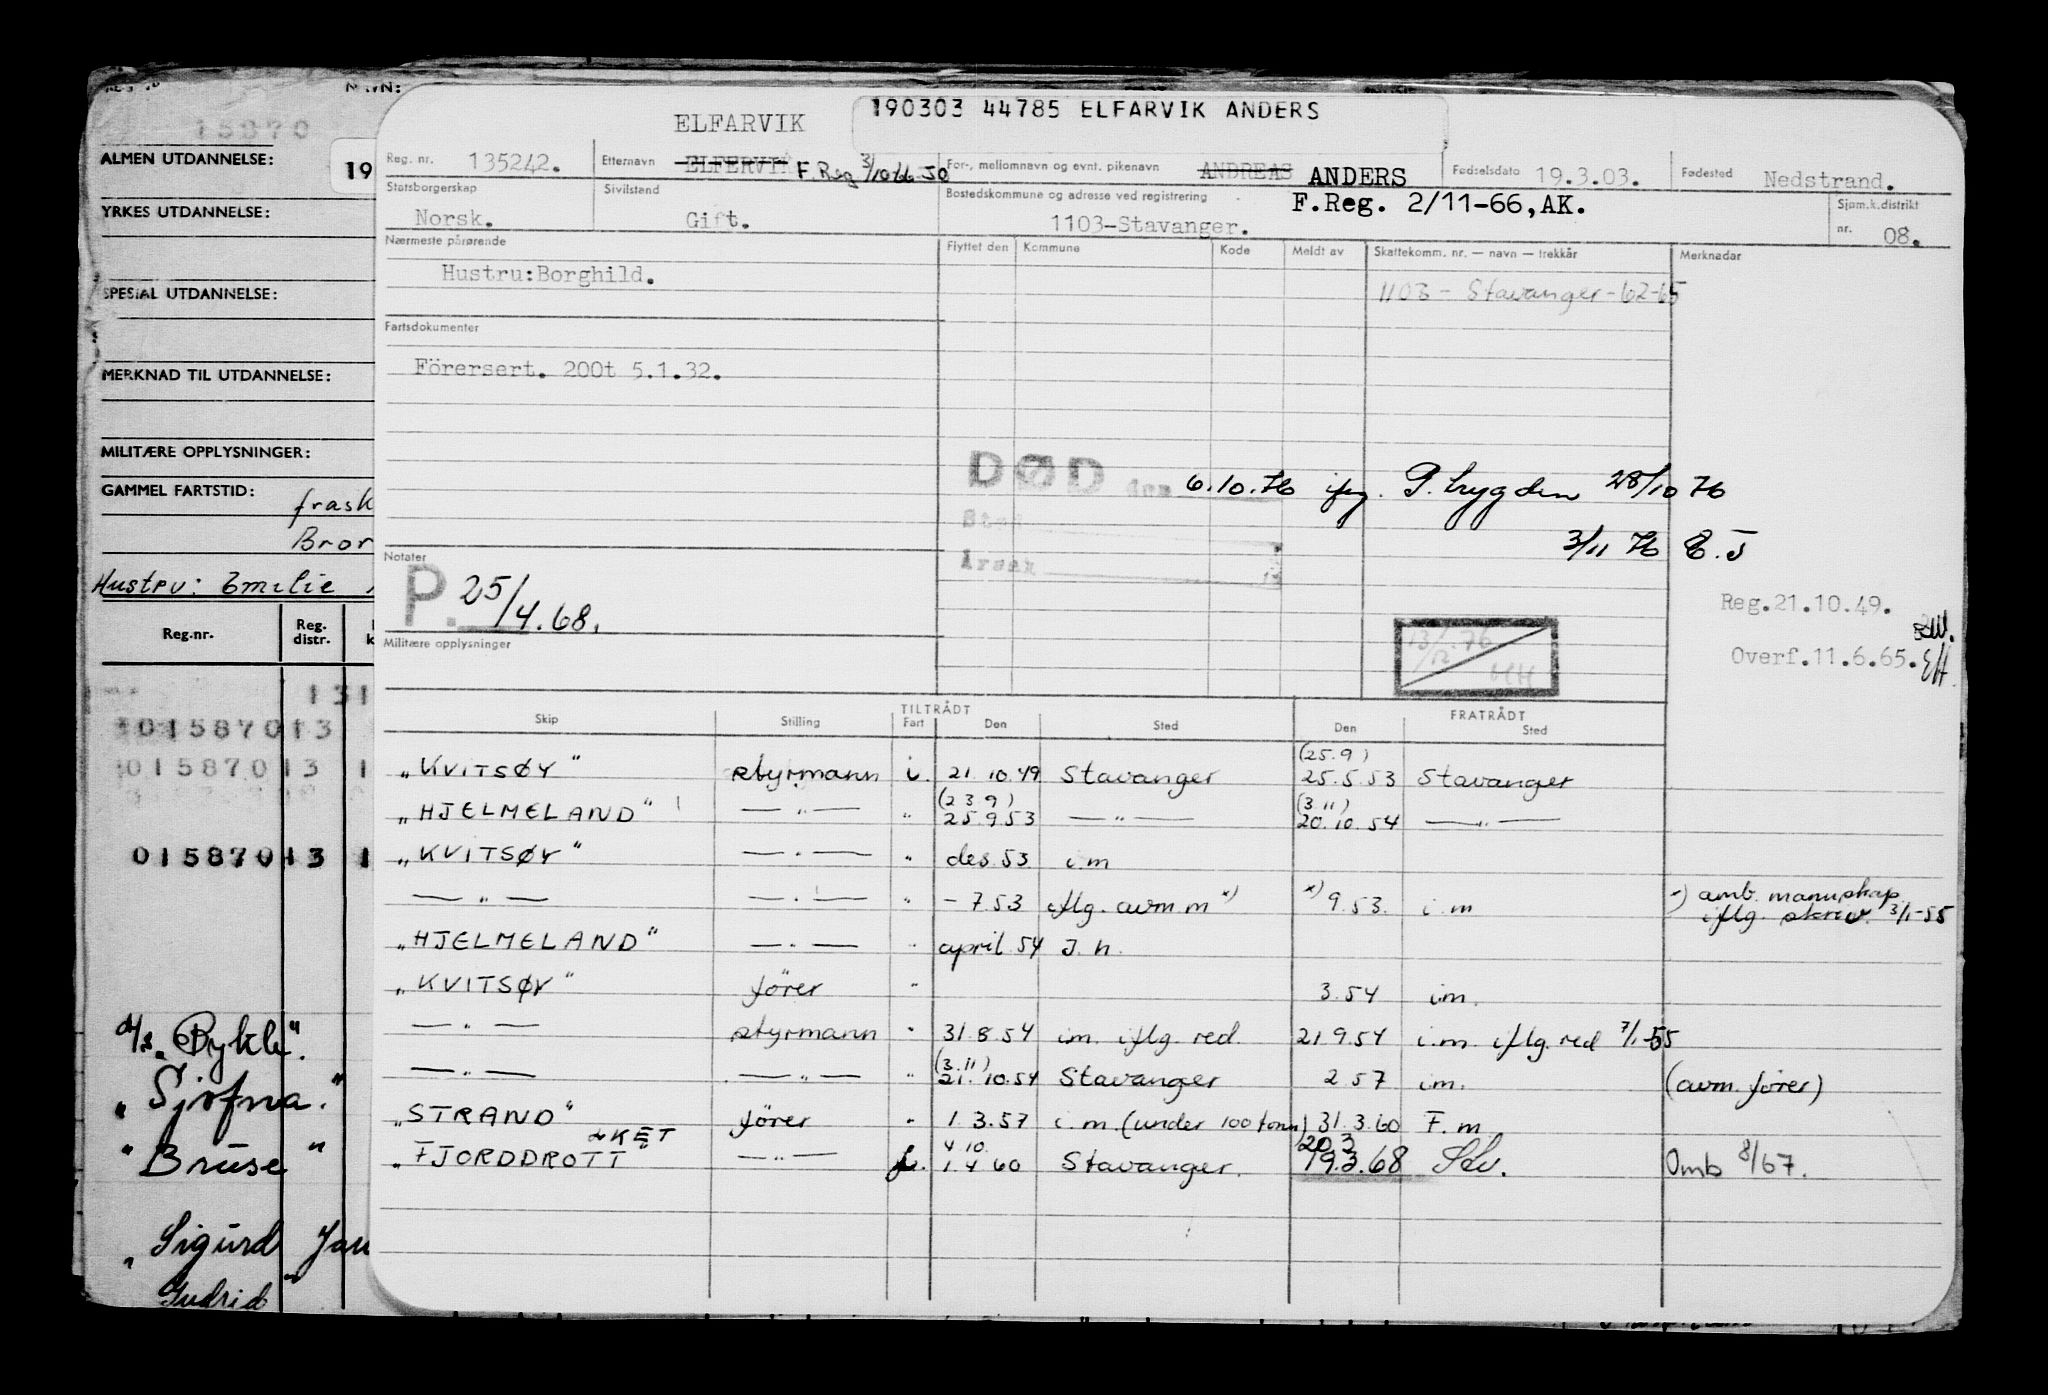 NAVN:
15870
ALMEN UTDANNELSE:
19
YRKES UTDANNELSE:
SPESIAL UTDANNELSE:
MERKNAD TIL UTDANNELSE:
MILITÆRE OPPLYSNINGER:
GAMMEL FARTSTID:
frask
Bror
Hustru: Emilie
Reg.nr. Reg. distr.
131
01587013
01587013 1
01587013 1
d/s „Bykle".
„Sjofna."
"Bruse"
„Sigurd Jau
Gudrid"
190303 44785 ELFARVIK ANDERS
ELFARVIK
Reg. nr. 135242. Etternavn ELFERVIK F.Reg 3/10-66 JO For-, mellomnavn og evnt. pikenavn ANDREAS ANDERS Fødselsdato 19.3.03. Fødested Nedstrand.
Statsborgerskap Norsk. Sivilstand Gift. Bostedskommune og adresse ved registrering 1103-Stavanger. F.Reg. 2/11-66,AK. Sjøm.k.distrikt nr. 08.
Nærmeste pårørende Flyttet den Kommune Kode Meldt av Skattekomm. nr. — navn — trekkår Merknader
Hustru:Borghild.
1103 - Stavanger-62-65
Fartsdokumenter
Förersert. 200t 5.1.32.
DØD den 6.10.76 iflg. P.trygden 28/10 76
Sted
3/11 76 E.J
Årsak
Notater
P. 25/4.68.
Reg.21.10.49.
Overf.11.6.65. EH.
Militære opplysninger
13/12.76
HH
TILTRÅDT FRATRÅDT
Skip Stilling Fart Den Sted Den Sted
(25.9)
„KVITSØY" styrmann i. 21.10.49 Stavanger 25.5.53 Stavanger
(23 9) (3.11)
„HJELMELAND" — " — " 25.9.53 — " — 20.10.54 — " —
„KVITSØY" — " — " des.53 i.m
— " — — " — " - 7.53 iflg. avm.m x) x) 9.53. i.m x) amb. mannskap iflg. skriv. 3/1-55
„HJELMELAND" — " — " april 54 J.h.
„KVITSØY" förer " 3.54 i.m.
— " — styrmann " 31.8.54 i.m. iflg. red. 21.9.54 i.m. iflg. red 7/1-55
(3.11)
— " — — " — " 21.10.54 Stavanger 2.57 i.m. (avm. förer)
„STRAND" förer " 1.3.57 i.m. (under 100 tonn) 31.3.60 F.m
LKET 4 10. 20.3
„FJORDDROTT" — " — L. 1.4.60 Stavanger. 19.3.68 Sdv. Omb 8/67.